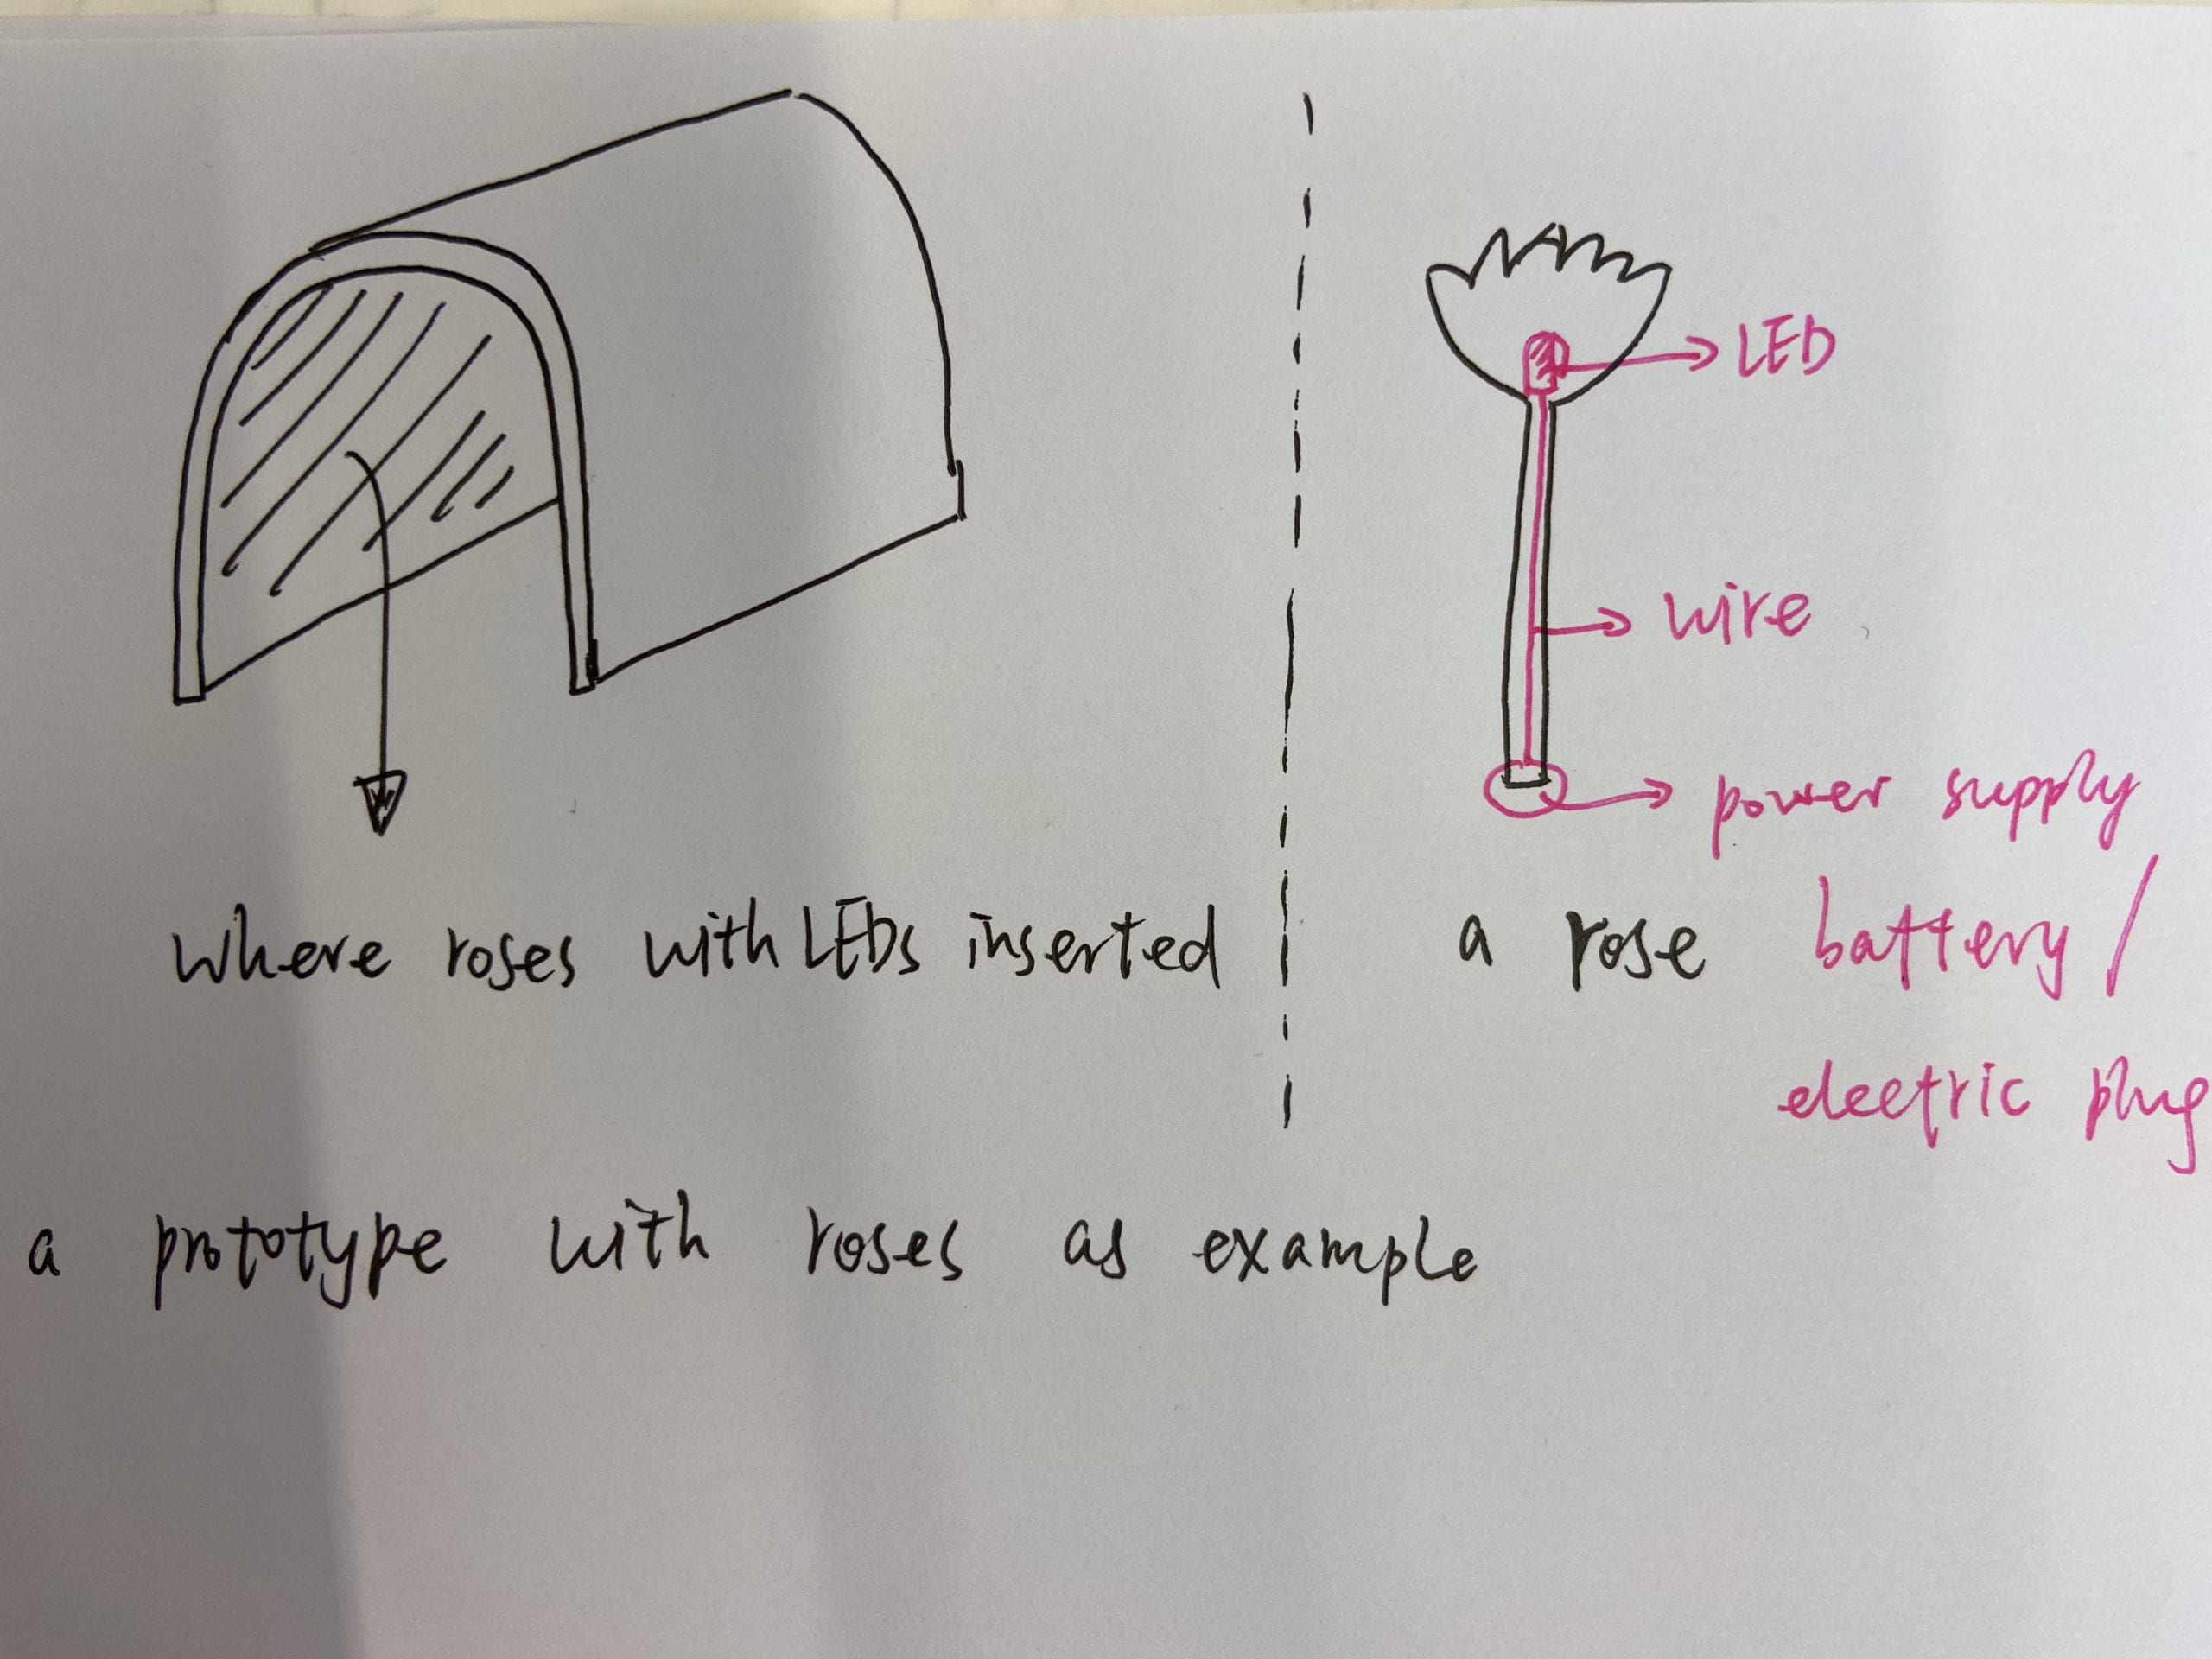 LED
wire
power supply
where roses with LEDs inserted
a rose
battery/
electric plug
a prototype with roses as example